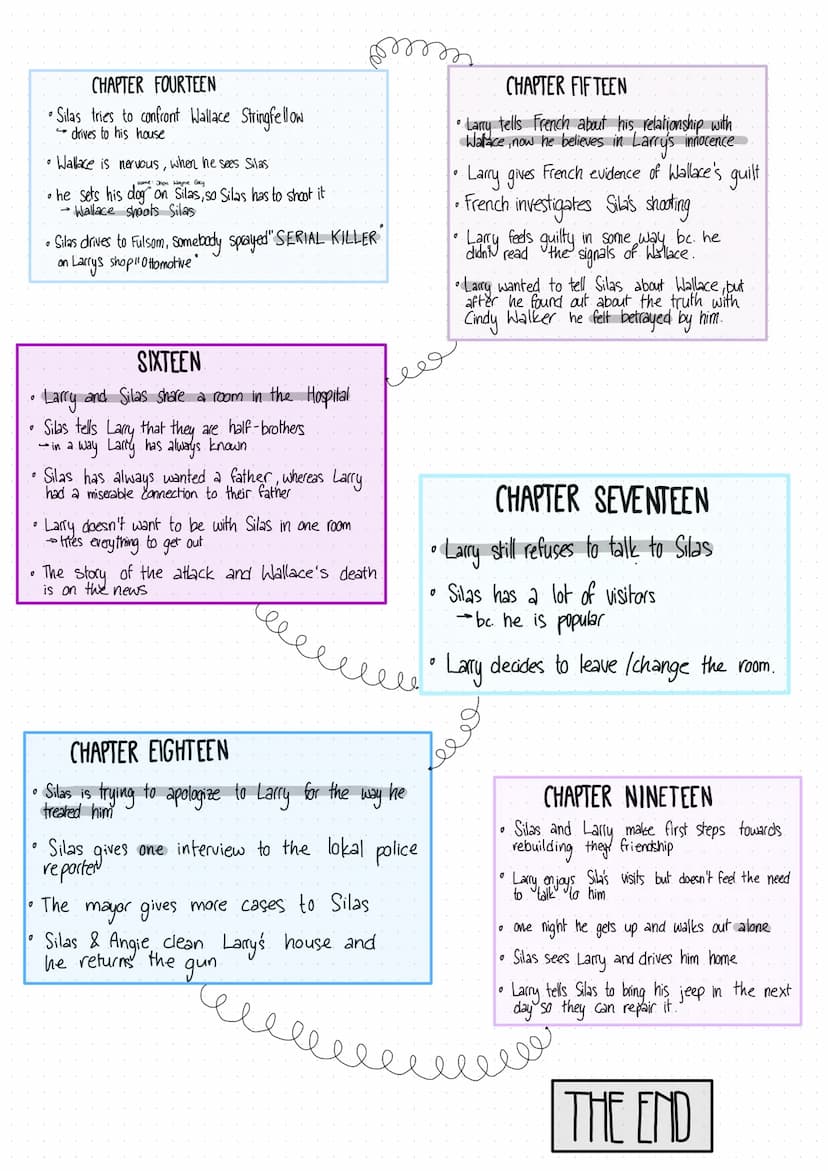 CHAPTER FOURTEEN
• Silas tries to confront Wallace Stringfellow
→ drives to his house
• Wallace is nervous, when he sees Silas
name: John Wayne Gacy
• he sets his dog on Silas, so Silas has to shoot it
→ Wallace shoots Silas
• Silas drives to Fulsom, somebody sprayed "SERIAL KILLER"
on Larrys shop "Ottomotive"
CHAPTER FIFTEEN
• Larry tells French about his relationship with
Wallace, now he believes in Larry's innocence
• Larry gives French evidence of Wallace's guilt
• French investigates Sila's shooting
• Larry feels guilty in some way bc. he
didn't read the signals of Wallace.
• Larry wanted to tell Silas about Wallace, but
after he found out about the truth with
Cindy Walker he felt betrayed by him.
SIXTEEN
• Larry and Silas share a room in the Hospital
• Silas tells Larry that they are half-brothers
→ in a way Larry has always known
• Silas has always wanted a father, whereas Larry
had a miserable connection to their father
• Larry doesn't want to be with Silas in one room
→ tries everything to get out
• The story of the attack and Wallace's death
is on the news
CHAPTER SEVENTEEN
• Larry still refuses to talk to Silas
• Silas has a lot of visitors
→ bc. he is popular
• Larry decides to leave/change the room.
CHAPTER EIGHTEEN
• Silas is trying to apologize to Larry for the way he
treated him
• Silas gives one interview to the lokal police
reporter
• The mayor gives more cases to Silas
• Silas & Angie clean Larry's house and
he returns the gun
CHAPTER NINETEEN
• Silas and Larry make first steps towards
rebuilding they friendship
• Larry enjoys Sila's visits but doesn't feel the need
to talk to him
• one night he gets up and walks out alone
• Silas sees Larry and drives him home
• Larry tells Silas to bring his jeep in the next
day so they can repair it.
THE END